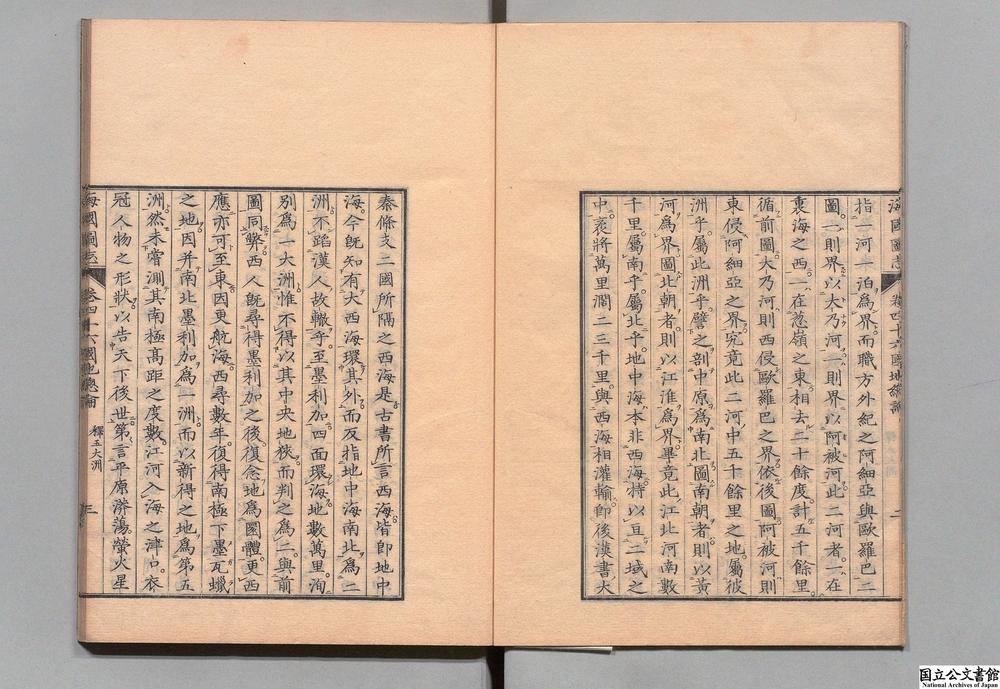 海國圖志 卷四十六國地總論 二
指一河一泊爲界。而職方外紀之阿細亞與歐羅巴二
圖。一則界以大乃河。一則界以阿被河。此二河者。一在
裏海之西。一在葱嶺之東。相去二十餘度。計五千餘里。
循前圖。大乃河則西侵歐羅巴之界。依後圖阿被河則
東侵阿細亞之界。究竟此二河中五十餘里之地。屬彼
洲乎。屬此洲乎。譬之剖中原爲南北。圖南朝者。則以黃
河爲界。圖北朝者。則以江淮爲界。畢竟此江北河南數
千里。屬南乎。屬北乎。地中海本非西海。特以亘二域之
中。袤將萬里。濶二三千里。與西海相灌輸。即後漢書大
秦條支二國所隔之西海。是古書所言西海。皆即地中
海。今既知有大西海環其外。而反指地中海南北。爲二
洲。不蹈漢人故轍乎。至墨利加四面環海。地數萬里。洵
別爲一大洲。惟不得以其中央地狹而判之爲二。與前
圖同弊。西人既尋得墨利加之後。復念地爲圜體。更西
應亦可至東。因更航海。西尋數年。復得南極下墨瓦蠟
之地。因并南北墨利加。爲一洲。而以新得之地爲第五
洲。然未嘗測其南極高距之度數。江河入海之津口。衣
冠人物之形狀。以告天下後世。第言平原漭蕩。螢火星
海國圖志 卷四十六國地總論 釋五大洲 三
国立公文書館
National Archives of Japan